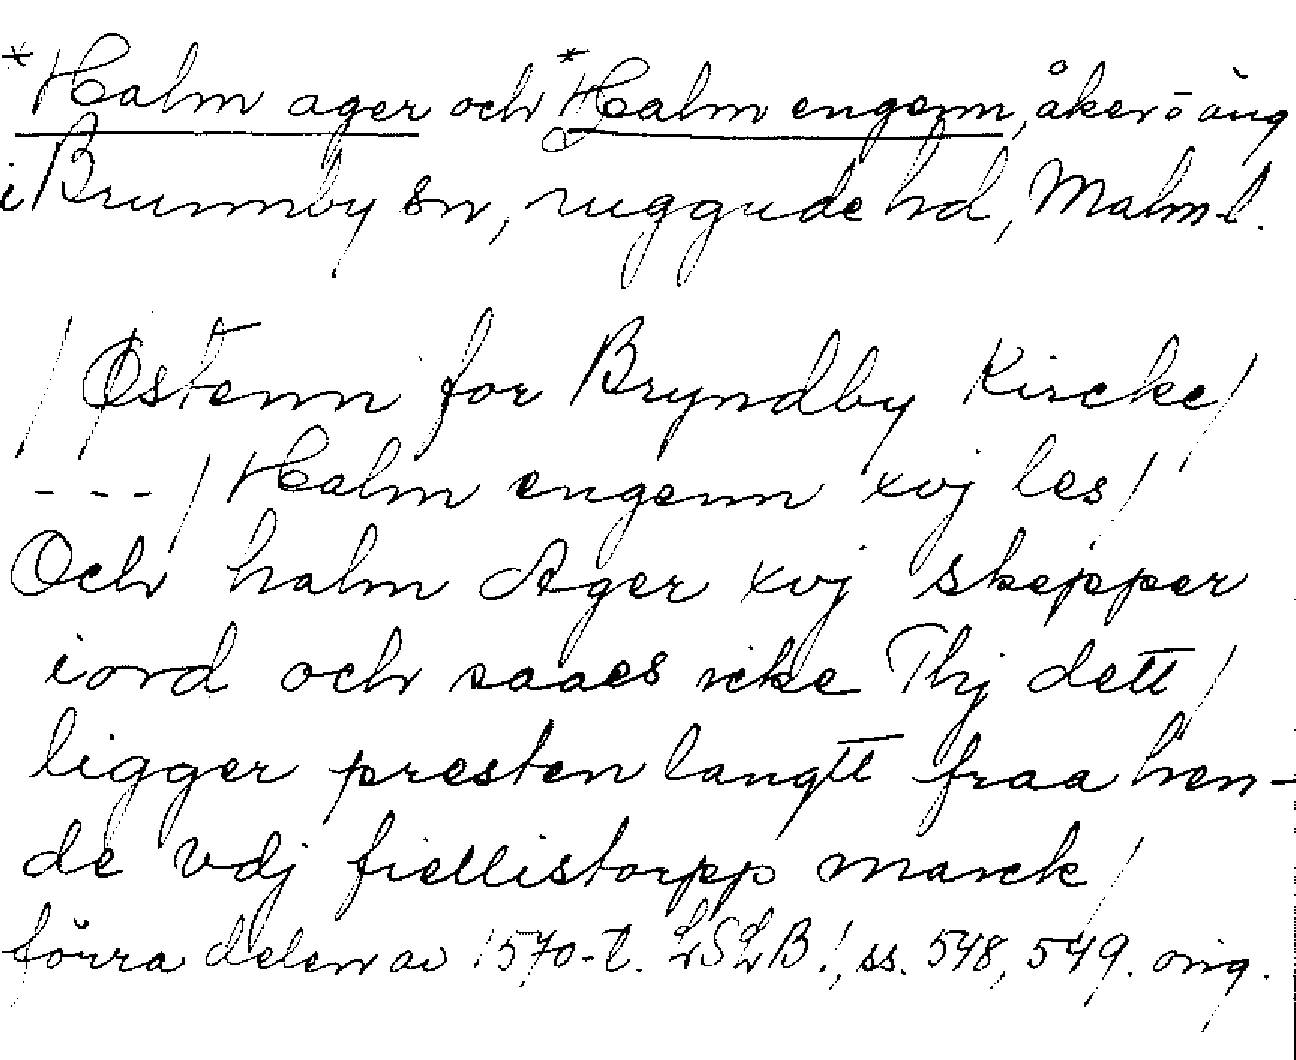 *Halm ager och *Halm engenn, åker o äng
i Brunnby sn, Luggude hd, Malm.l.
/ Østenn for Bryndby Kircke /
- - - / Halm engenn xvj les /
Och halm Ager xvj skepper
iord och saaes icke Thj dett /
ligger presten langtt fraa hen-
de vdj fiellistorpp marck /
förra delen av 1570-t. LSLB1, ss. 548, 549. orig.